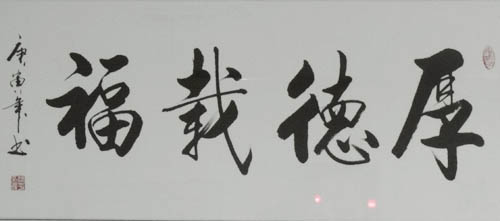 厚德載福
庚寅年书